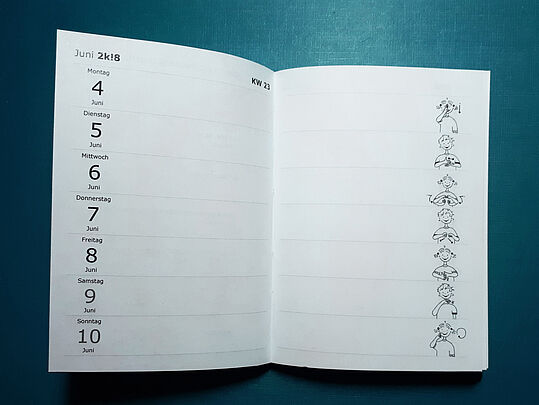 Juni 2k!8
KW 23
Montag
4
Juni
Dienstag
5
Juni
Mittwoch
6
Juni
Donnerstag
7
Juni
Freitag
8
Juni
Samstag
9
Juni
Sonntag
10
Juni